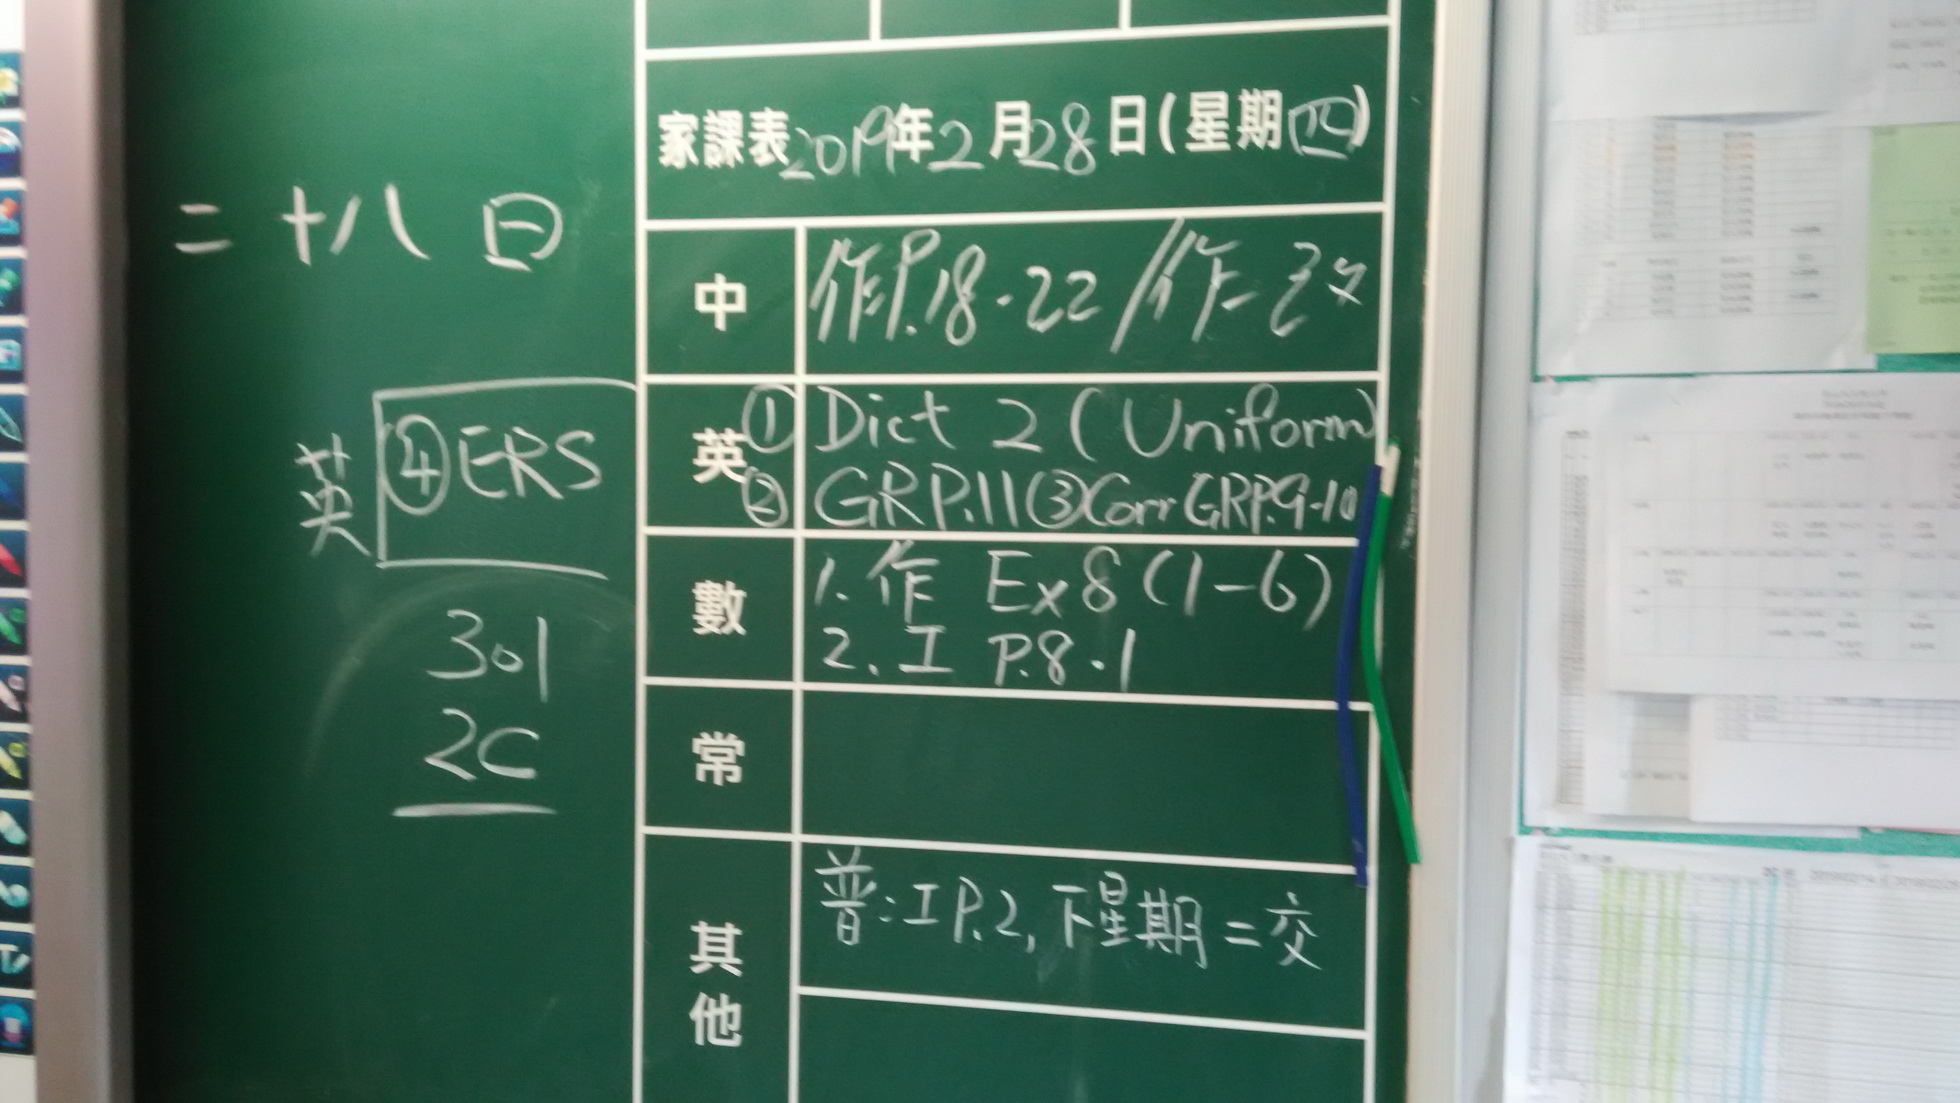 家課表2019年2月28日(星期四)
二十八日
中 作P.18-22/作
英 ①Dict 2 (Uniform)
②GR P.11 ③Corr GR P.9-10
英 ④ERS
數 1. 作 Ex 8 (1-6)
2. 工 P.8.1
301
20
常
其他 普:工P.2,下星期二交